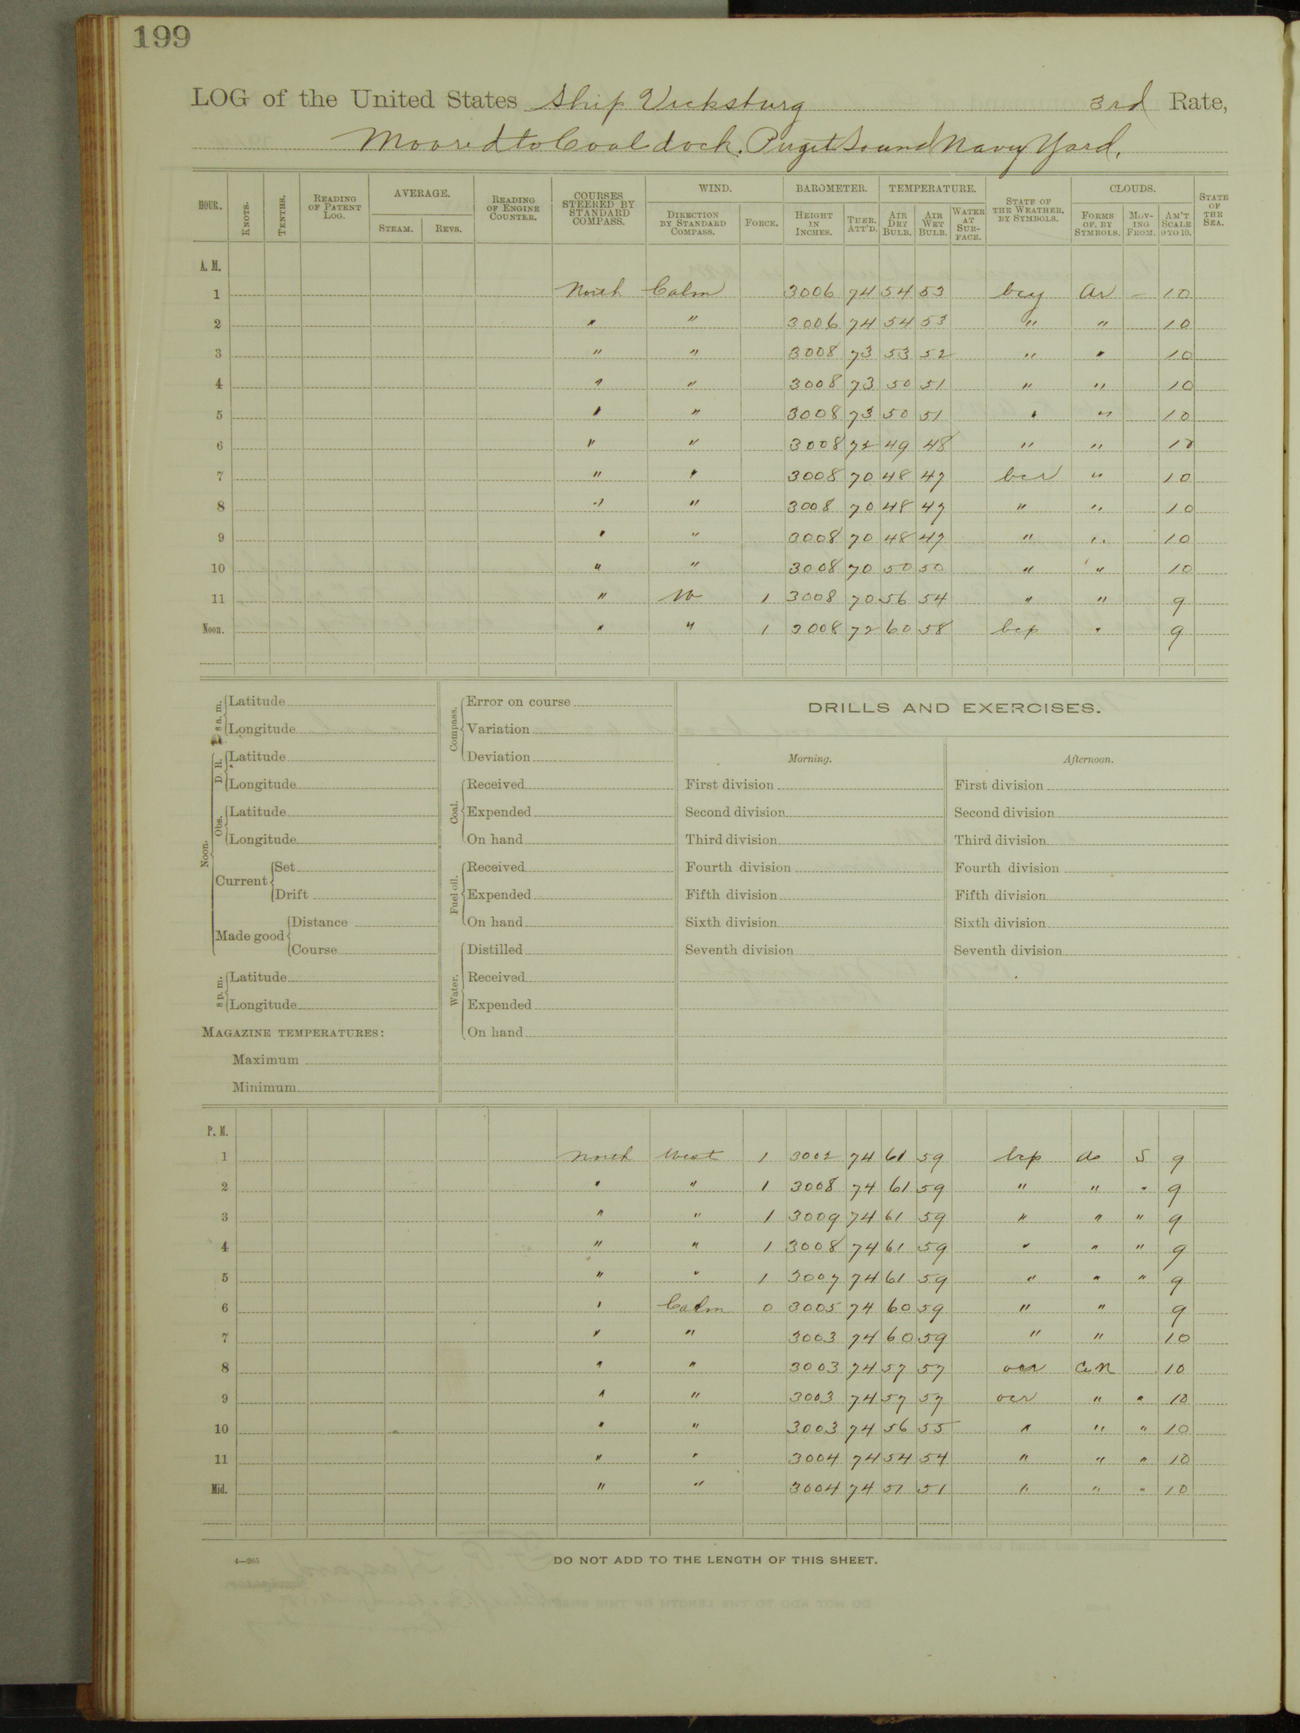 199
LOG of the United States Ship Vicksburg 3rd Rate,
Moored to Coal dock. Puget Sound Navy Yard.
HOUR. KNOTS. TENTHS. READING OF PATENT LOG. AVERAGE. STEAM. REVS. READING OF ENGINE COUNTER. COURSES STEERED BY STANDARD COMPASS. WIND. DIRECTION BY STANDARD COMPASS. FORCE. BAROMETER. HEIGHT IN INCHES. THER. ATT'D. TEMPERATURE. AIR DRY BULB. AIR WET BULB. WATER AT SURFACE. STATE OF THE WEATHER, BY SYMBOLS. CLOUDS. FORMS OF, BY SYMBOLS. MOVING FROM. AM'T SCALE 0 TO 10. STATE OF THE SEA.
A. M.
1 North Calm 3006 74 54 53 bcy – 10
2 " " 3006 74 54 53 " " 10
3 " " 3008 73 53 52 " " 10
4 " " 3008 73 50 51 " " 10
5 " " 3008 73 50 51 " " 10
6 " " 3008 72 49 48 " " 10
7 " " 3008 70 48 47 bcr " 10
8 " " 3008 70 48 47 " " 10
9 " " 3008 70 48 47 " " 10
10 " " 3008 70 50 50 " " 10
11 " W 1 3008 70 56 54 " " 9
Noon. " " 1 3008 72 60 58 bcp " 9
8 a. m. Latitude
Longitude
Noon. D. R. Latitude
Longitude
Obs. Latitude
Longitude
Current Set
Drift
Made good Distance
Course
8 p. m. Latitude
Longitude
MAGAZINE TEMPERATURES:
Maximum
Minimum
Compass. Error on course
Variation
Deviation
Coal. Received
Expended
On hand
Fuel oil. Received
Expended
On hand
Water. Distilled
Received
Expended
On hand
DRILLS AND EXERCISES.
Morning. Afternoon.
First division First division
Second division Second division
Third division Third division
Fourth division Fourth division
Fifth division Fifth division
Sixth division Sixth division
Seventh division Seventh division
P. M.
1 North West 1 3002 74 61 59 bcp do S 9
2 " " 1 3008 74 61 59 " " " 9
3 " " 1 3009 74 61 59 " " " 9
4 " " 1 3008 74 61 59 " " " 9
5 " " 1 3007 74 61 59 " " " 9
6 " Calm 0 3005 74 60 59 " " 9
7 " " 3003 74 60 59 " " 10
8 " " 3003 74 57 57 ocr 10
9 " " 3003 74 57 57 ocr " " 10
10 " " 3003 74 56 55 " " " 10
11 " " 3004 74 54 54 " " " 10
Mid. " " 3004 74 51 51 " " " 10
4—265
DO NOT ADD TO THE LENGTH OF THIS SHEET.